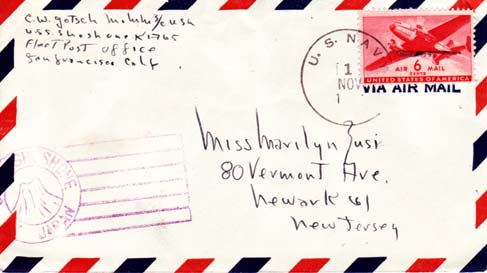 C.W. Gotsch
U.S.S. Shoshone K1765
Fleet Post Office
San Francisco Calif
U.S. NAV
1
NOV
1
AIR 6 MAIL
CENTS
UNITED STATES OF AMERICA
VIA AIR MAIL
Miss Marilyn Zusi
80 Vermont Ave.
Newark 61
New Jersey
JAPAN